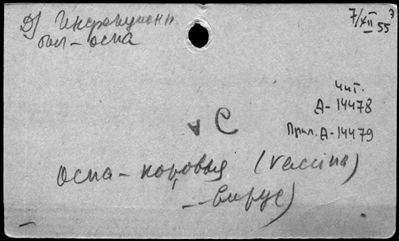 Д) Инфекционн
бол-оспа
7/XII 55 э
чит.
А-14478
Прил. А-14479
оспа-коровья (vaccina)
--вирус)